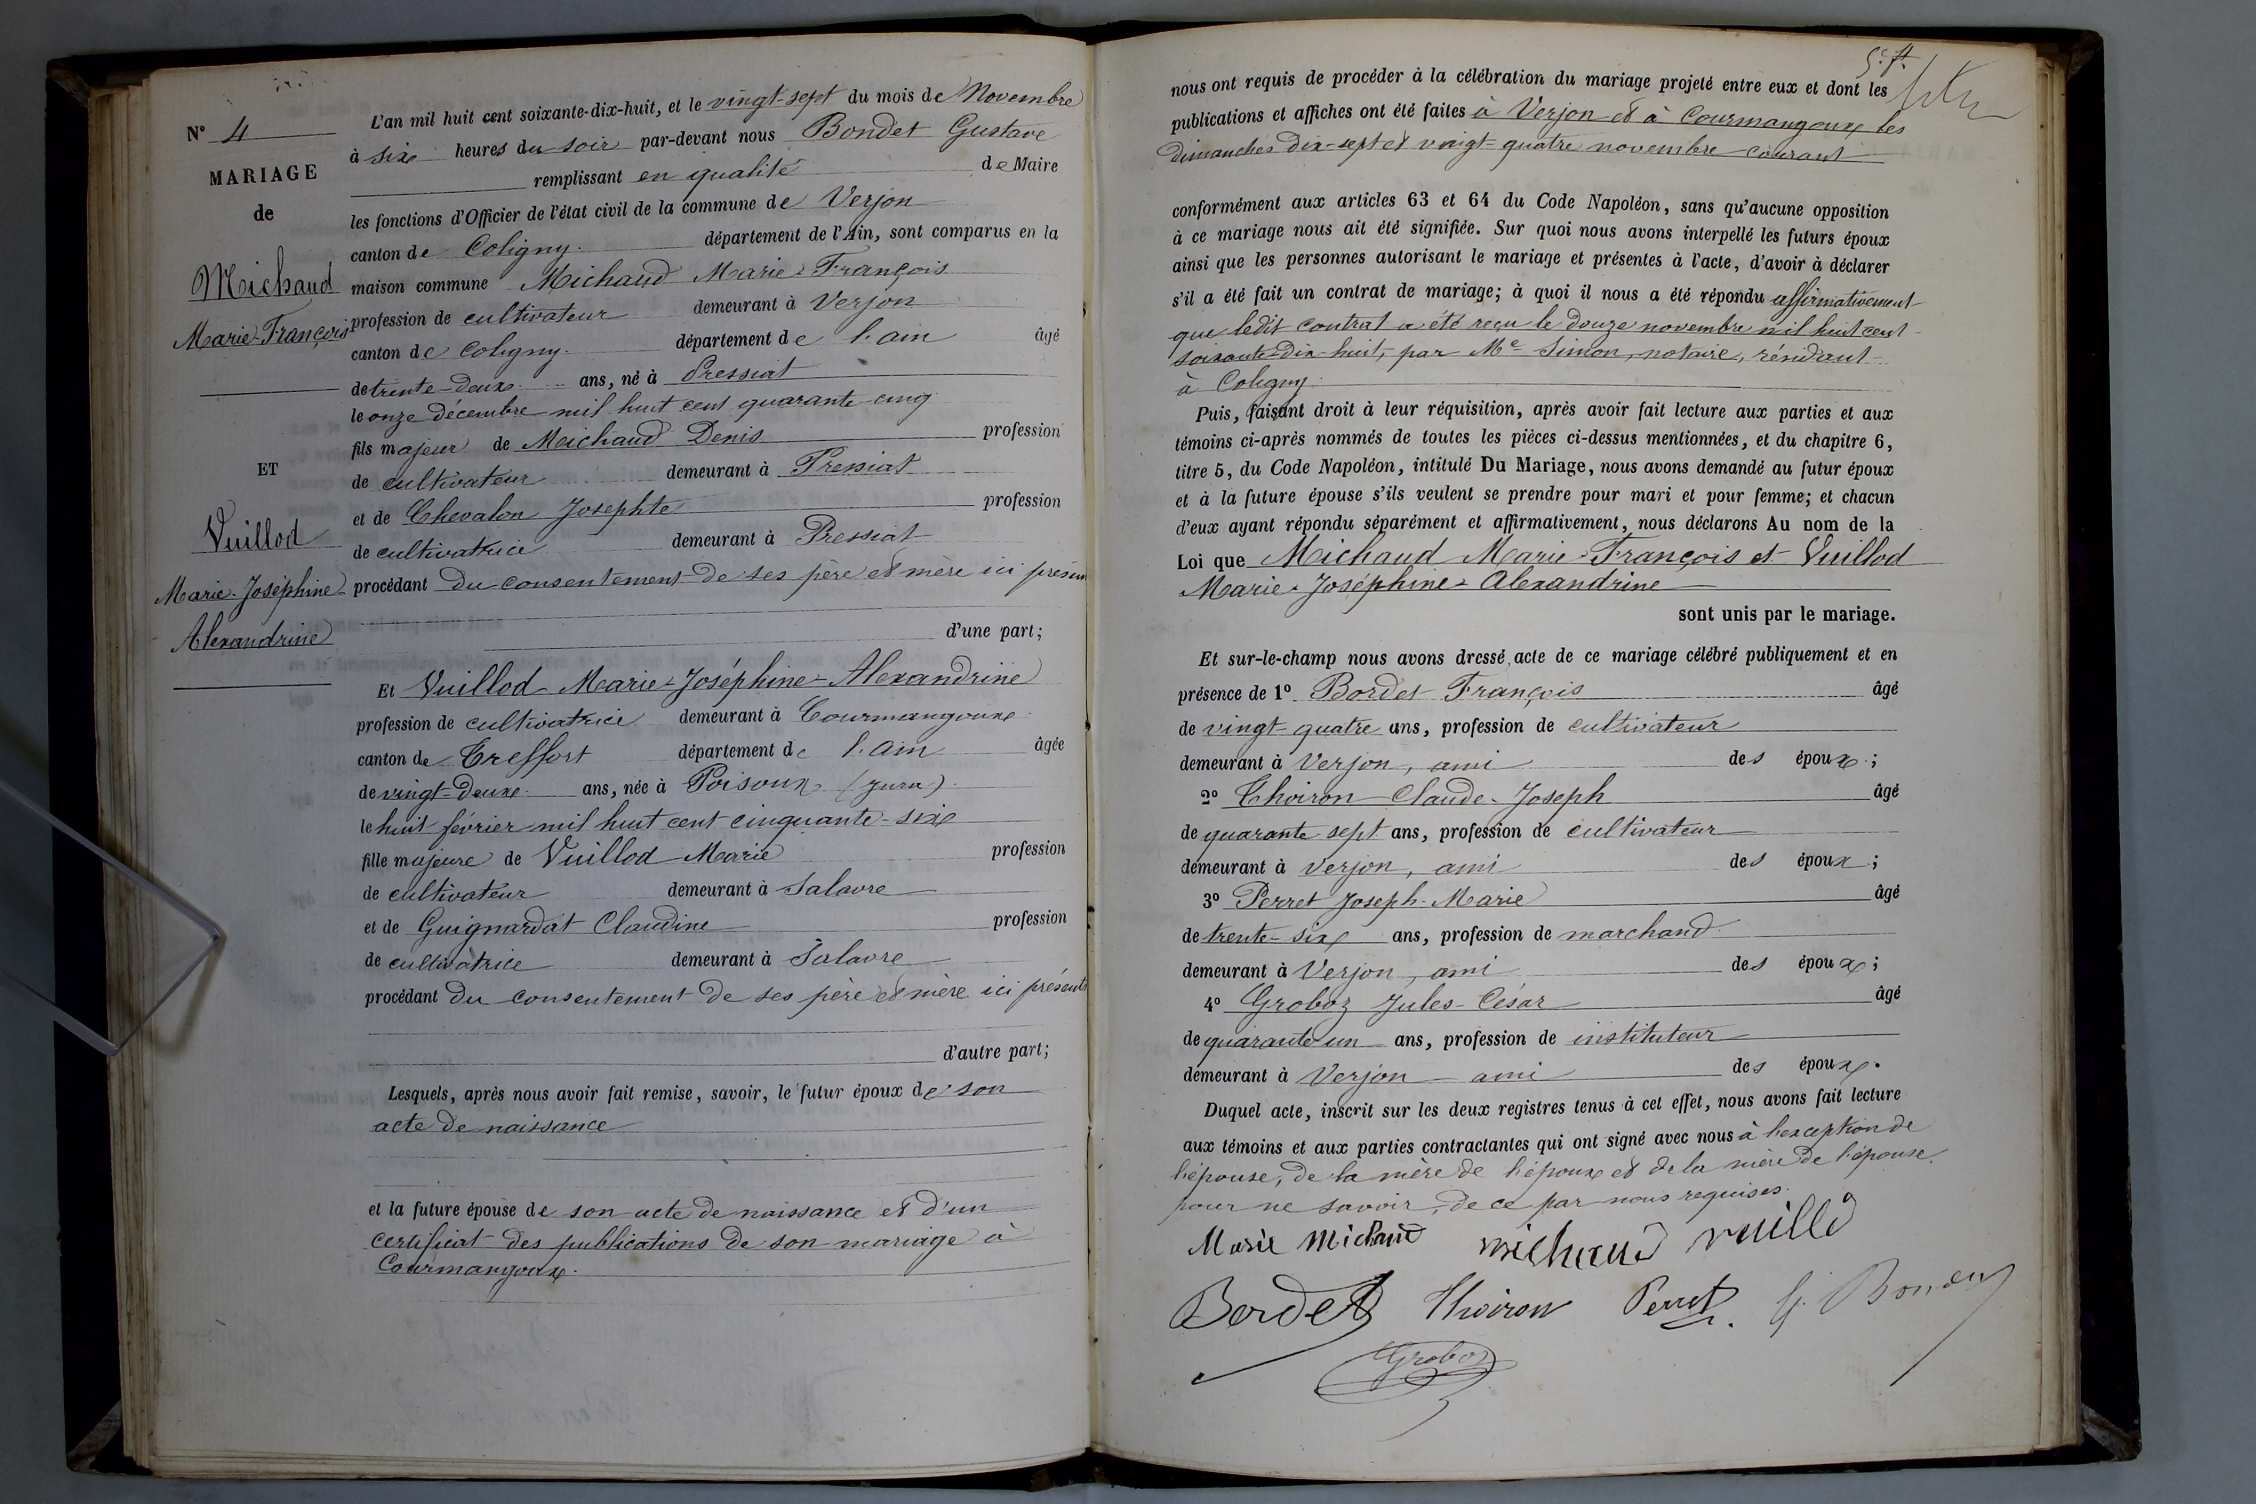 N° 4
MARIAGE
de
Michaud
Marie-François
ET
Vuillod
Marie-Joséphine-
Alexandrine
L'an mil huit cent soixante-dix-huit, et le vingt-sept du mois de Novembre
à six heures du soir par-devant nous Bondet Gustave
remplissant en qualité de Maire
les fonctions d'Officier de l'état civil de la commune de Verjon
canton de Coligny. département de l'Ain, sont comparus en la
maison commune Michaud Marie-François
profession de cultivateur demeurant à Verjon
canton de Coligny. département de l'ain âgé
de trente-deux ans, né à Pressiat
le onze décembre mil huit cent quarante-cinq
fils majeur de Michaud Denis profession
de cultivateur demeurant à Pressiat
et de Chevalon Josephte profession
de cultivatrice demeurant à Pressiat
procédant du consentement de ses père et mère ici présents
d'une part;
Et Vuillod Marie-Joséphine-Alexandrine
profession de cultivatrice demeurant à Courmangoux
canton de Treffort département de l'ain âgée
de vingt-deux ans, née à Poisoux (jura)
le huit février mil huit cent cinquante-six
fille majeure de Vuillod Marie profession
de cultivateur demeurant à Salavre
et de Guignardat Claudine profession
de cultivatrice demeurant à Salavre
procédant du consentement de ses père et mère ici présents
d'autre part;
Lesquels, après nous avoir fait remise, savoir, le futur époux de son
acte de naissance
et la future épouse de son acte de naissance et d'un
certificat des publications de son mariage à
Courmangoux.
nous ont requis de procéder à la célébration du mariage projeté entre eux et dont les
publications et affiches ont été faites à Verjon et à Courmangoux les
dimanches dix-sept et vingt-quatre novembre courant
conformément aux articles 63 et 64 du Code Napoléon, sans qu'aucune opposition
à ce mariage nous ait été signifiée. Sur quoi nous avons interpellé les futurs époux
ainsi que les personnes autorisant le mariage et présentes à l'acte, d'avoir à déclarer
s'il a été fait un contrat de mariage; à quoi il nous a été répondu affirmativement
que ledit contrat a été reçu le douze novembre mil huit cent
soixante-dix-huit, par Me Simon, notaire, résidant
à Coligny.
Puis, faisant droit à leur réquisition, après avoir fait lecture aux parties et aux
témoins ci-après nommés de toutes les pièces ci-dessus mentionnées, et du chapitre 6,
titre 5, du Code Napoléon, intitulé Du Mariage, nous avons demandé au futur époux
et à la future épouse s'ils veulent se prendre pour mari et pour femme; et chacun
d'eux ayant répondu séparément et affirmativement, nous déclarons Au nom de la
Loi que Michaud Marie-François et Vuillod
Marie-Joséphine-Alexandrine
sont unis par le mariage.
Et sur-le-champ nous avons dressé acte de ce mariage célébré publiquement et en
présence de 1° Bordet François âgé
de vingt-quatre ans, profession de cultivateur
demeurant à Verjon, ami des époux;
2° Thoiron Claude-Joseph âgé
de quarante sept ans, profession de cultivateur
demeurant à Verjon, ami des époux;
3° Perret Joseph-Marie âgé
de trente-six ans, profession de marchand
demeurant à Verjon, ami des époux;
4° Groboz Jules-César âgé
de quarante un ans, profession de instituteur
demeurant à Verjon ami des époux.
Duquel acte, inscrit sur les deux registres tenus à cet effet, nous avons fait lecture
aux témoins et aux parties contractantes qui ont signé avec nous à l'exception de
l'épouse, de la mère de l'époux et de la mère de l'épouse
pour ne savoir, de ce par nous requises.
Marie Michaud michaud vuillod
Bordet Thoiron Perret G. Bondet
Groboz